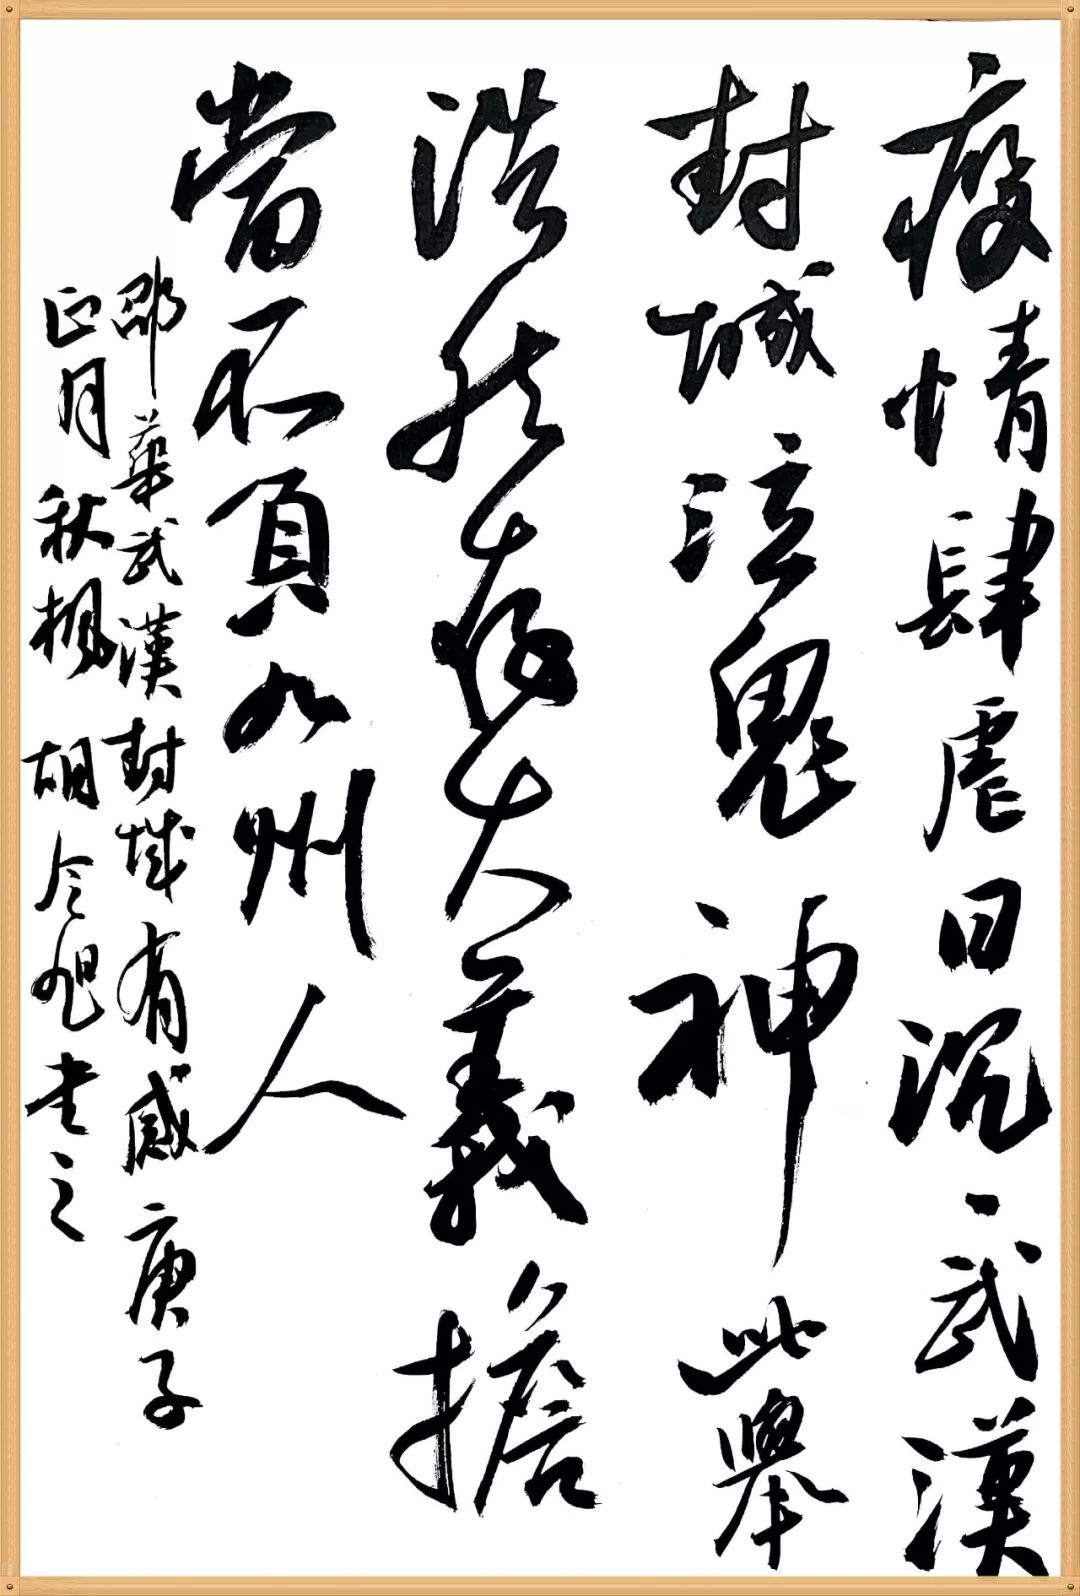 疫情肆虐日沉武漢
封城泣鬼神此舉
浩然存大義擔
當不負九州人
邵華武漢封城有感庚子
正月秋楓胡令旭書之